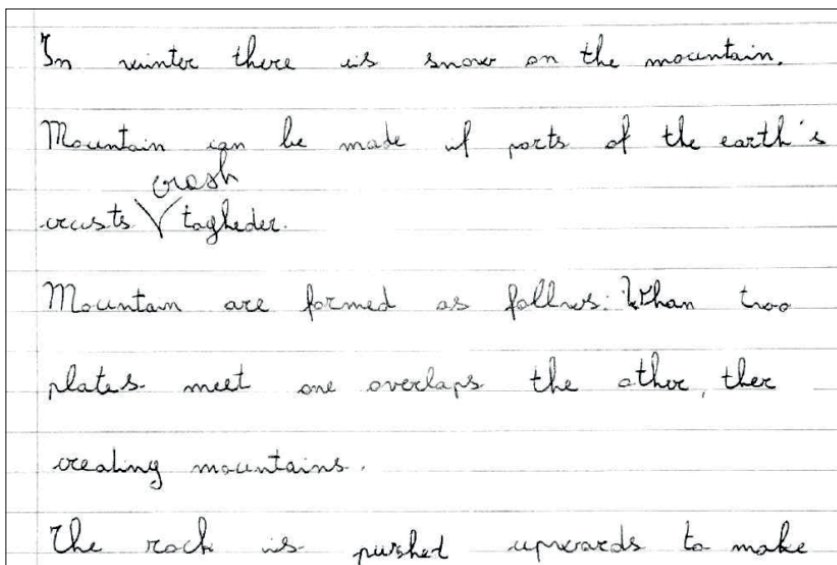 In winter there is snow on the mountain.
Mountain can be made if parts of the earth's
crash
crusts tagheder.
Mountain are formed as follws: Whan two
plates meet one overlaps the other, ther
creating mountains.
The rock is pushed upwards to make